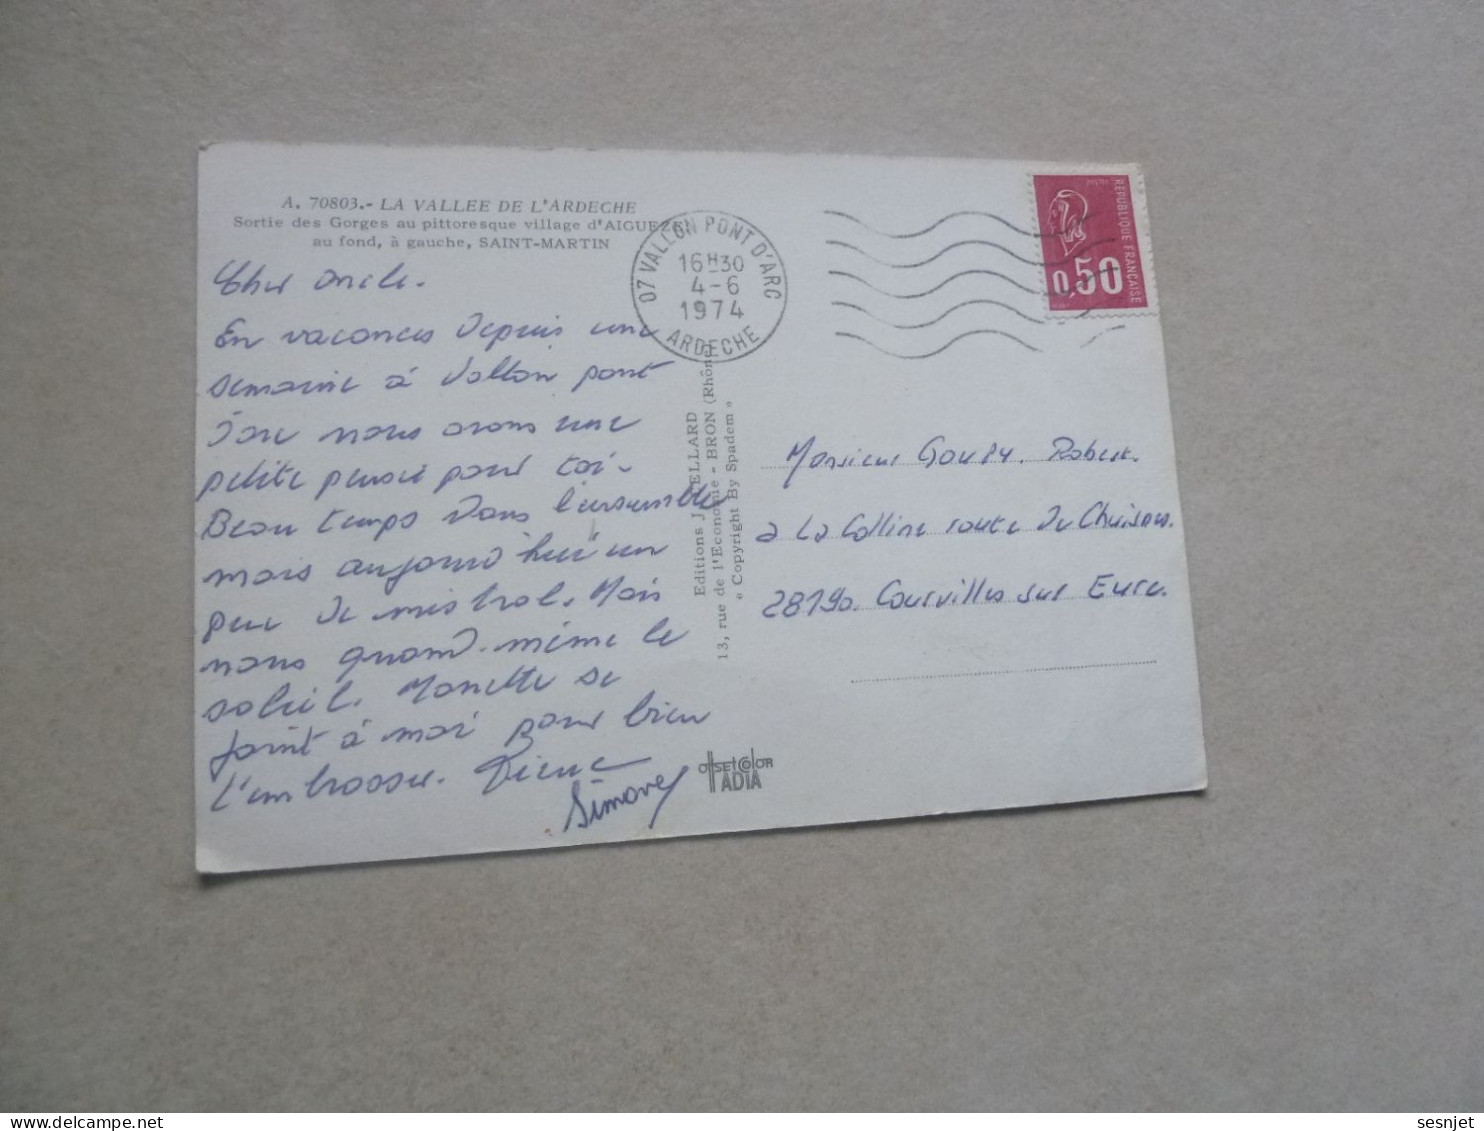 A. 70803.- LA VALLEE DE L'ARDECHE
Sortie des Gorges au pittoresque village d'AIGUEZE
au fond, à gauche, SAINT-MARTIN
Cher oncle.
En vacances depuis une
semaine à Vallon pont
d'arc nous avons une
petite pensée pour toi.
Beau temps dans l'ensemble
mais aujourd'hui un
peu de mistral. Mais
nous quand-même le
soleil. Monette se
joint à moi pour bien
t'embrasser.
Simone
07 VALLON PONT D'ARC
16H30
4-6
1974
ARDECHE
REPUBLIQUE FRANÇAISE
0,50
Editions J. CELLARD
13, rue de l'Economie - BRON (Rhône)
« Copyright By Spadem »
Monsieur Goupy. Robert.
à La Colline route de Chuisnes.
28190. Courvilles sur Eure.
OffsetColor
IADIA
sesnjet
delcampe.net